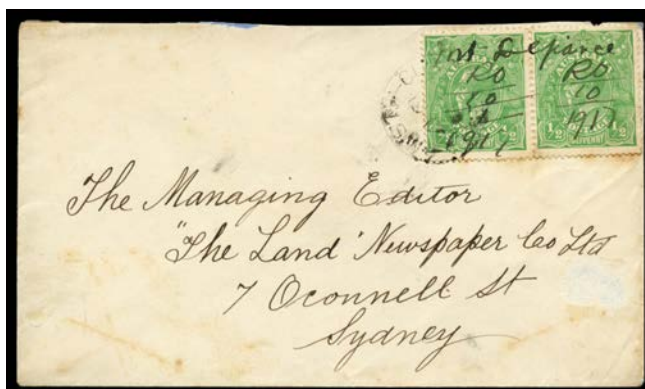 Mt Defiance
RO RO
10 10
1917 1917
½ ½
The Managing Editor
"The Land' Newspaper Co Ltd
7 Oconnell St
Sydney